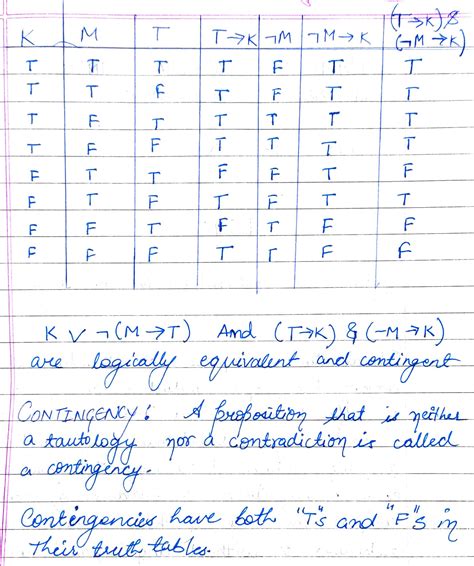 K M T T→K ¬M ¬M→K (T→K)&
(¬M→K)
T T T T F T T
T T F T F T T
T F T T T T T
T F F T T T T
F T T F F T F
F T F T F T T
F F T F T F F
F F F T T F F
K ∨ ¬(M→T) And (T→K) & (¬M→K)
are logically equivalent and contingent
CONTINGENCY: A proposition that is neither
a tautology nor a contradiction is called
a contingency.
Contingencies have both "T"s and "F"s in
their truth tables.